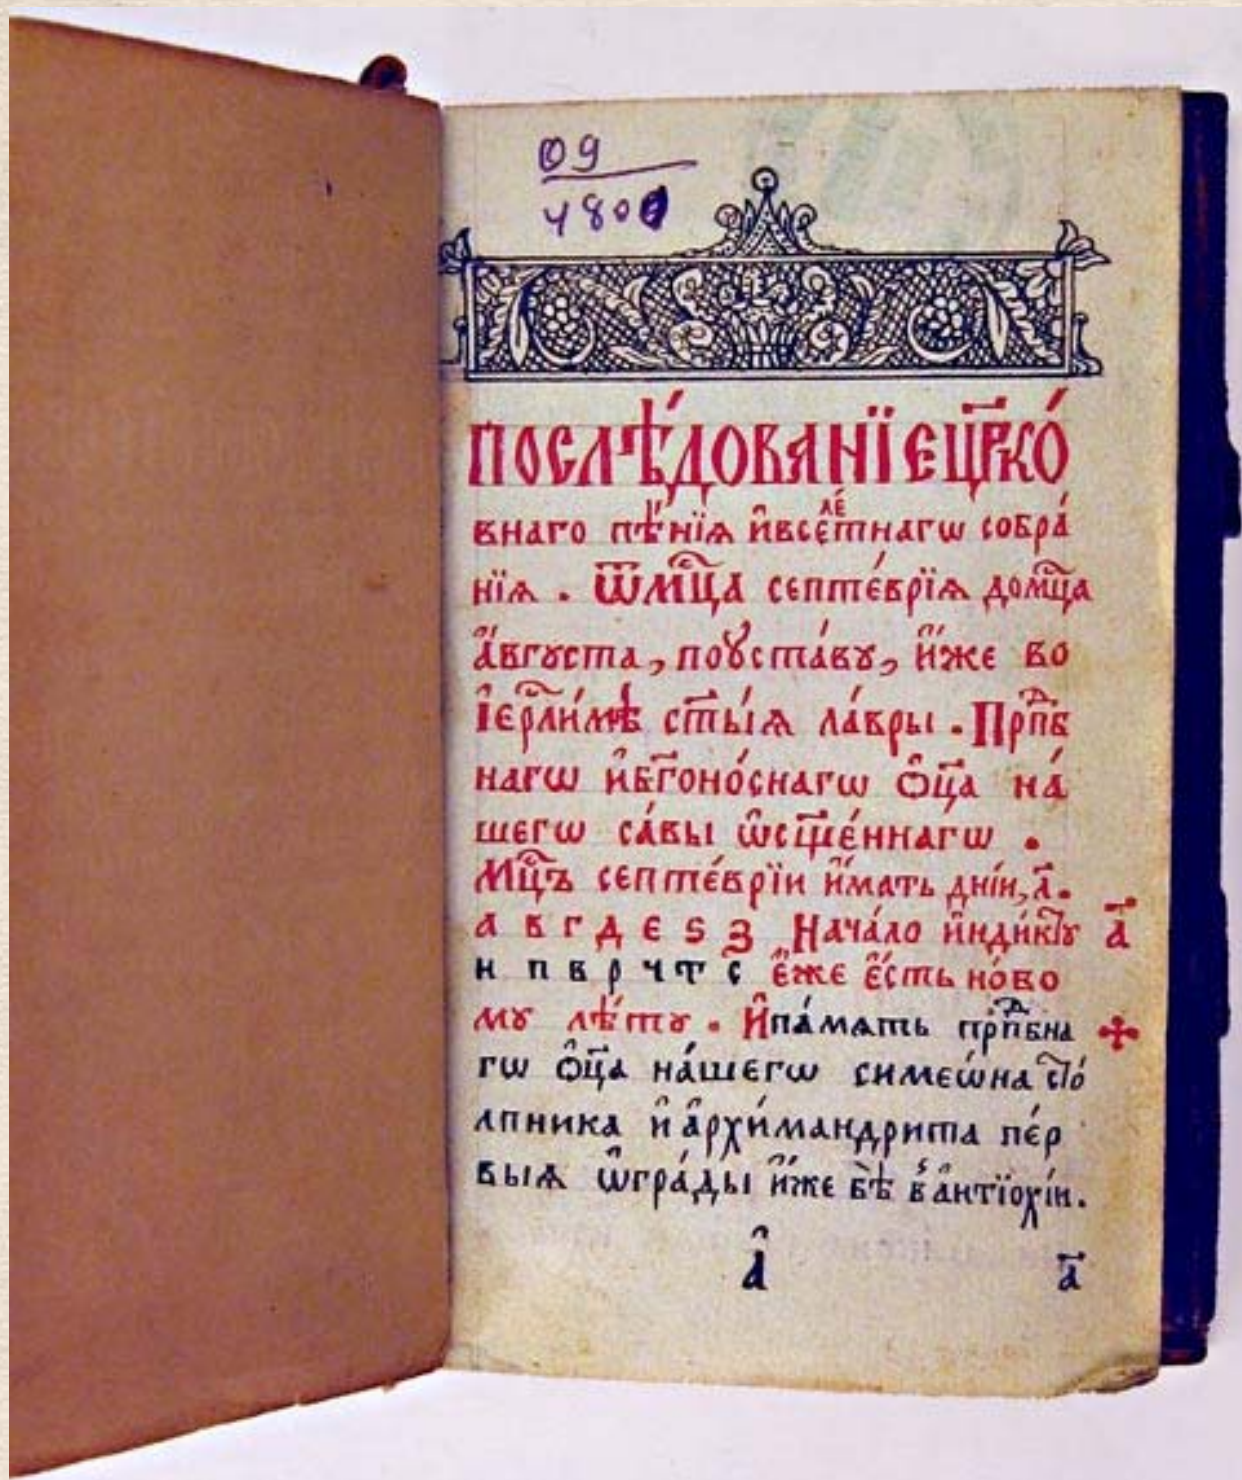 09
4800
ПОСЛѢ́ДОВАНЇЕ ЦР҃КО́
внаго пѣ́нїѧ и҆всеѧ҆лѣ́тнагѡ собра́
нїѧ . Ѿмцⷭ҇а септе́врїѧ домцⷭ҇а
а҆́вгꙋста, поꙋста́вꙋ, и҆́же во
І҆ерⷭ҇ли́мѣ ст҃ы́ѧ ла́вры . Прпⷣб
нагѡ и҆бг҃оно́снагѡ Ѻ҆ц҃а на́
шегѡ са́вы ѡ҆сщ҃е́ннагѡ .
Мцⷭ҇ъ септе́врїи и҆́мать дні́и, л҃.
а в г д е ѕ з Нача́ло и҆нди́ктꙋ а҃
н п в р ч т с е҆́же е҆́сть но́во
мꙋ лѣ́тꙋ . И҆па́мѧть прпⷣбна
гѡ Ѻ҆ц҃а на́шегѡ симеѡ́на сто́
лпника и҆ а҆рхи́мандрита пе́р
выѧ ѡ҆гра́ды и҆́же бѣ̀ в̾а҆нтїохі́и.
а҆ а҃